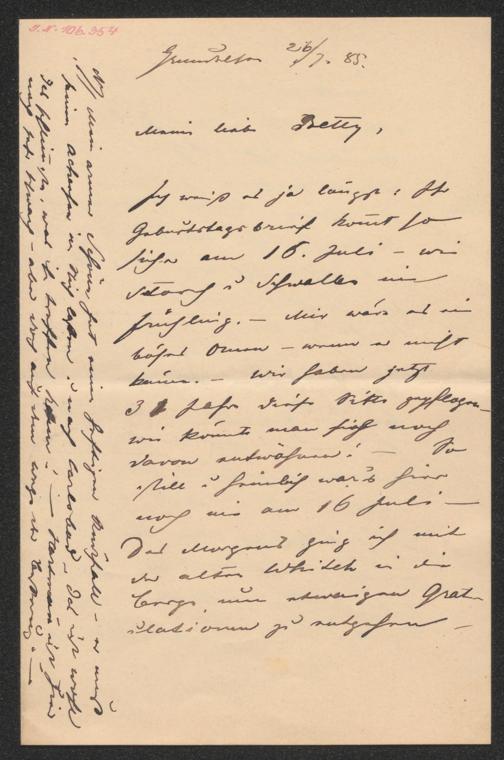 I.N. 106.954
Grundlsee 26/7. 85.
Meine liebe Betty,
Ich weiß es ja längst: Ihr
Geburtstagsbrief kom̄t so
sicher am 16. Juli – wie
Storch u Schwalbe im
Frühling. – Mir wäre es ein
böses Omen – wenn er nicht
käme. – Wir haben jetzt
31 Jahre diese Sitte gepflogen –
wie kön̄te man sich noch
davon entwöhnen! – So
still u heimlich war's hier
noch nie am 16 Juli –
Des Morgens ging ich mit
der alten in die
Berge, um etwaigen Grat-
ulationen zu entgehen –
Mein armer hat einen heftigen – er muß
seine u nach Carlsbad – Das ist wohl
das, was – ist hier
nach – aber auf dem Wege der Besserung. –